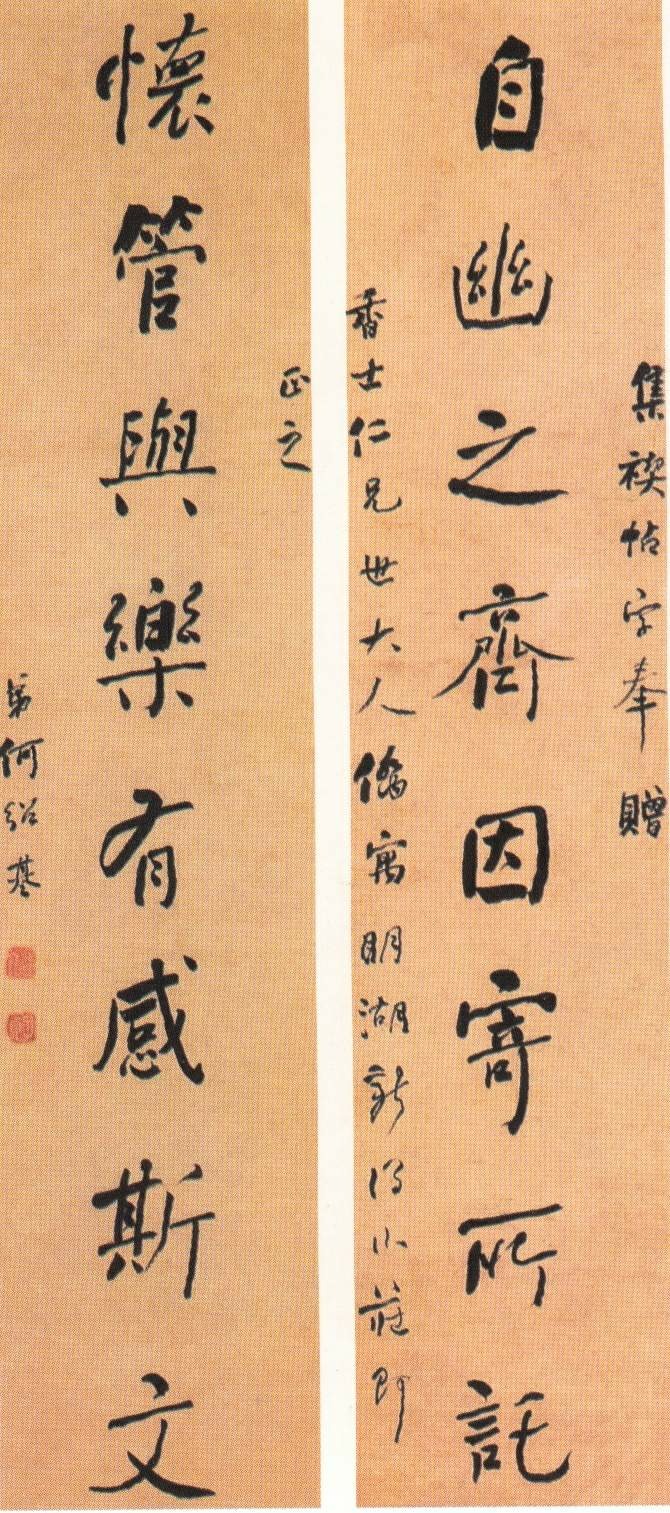 集禊帖字奉贈
自幽之齊因寄所託
香士仁兄世大人僑寓明湖新得小莊即
正之
懷管與樂有感斯文
弟何紹基